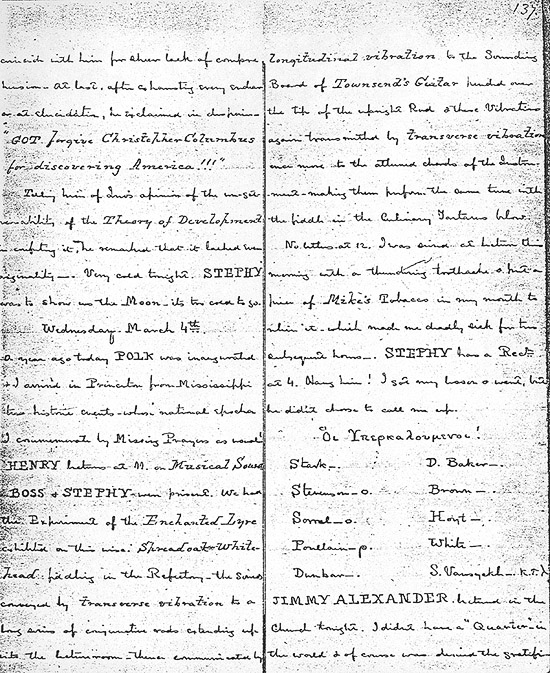 137.
with him for their lack of compre
hension - At last, after exhausting every endeav
or at elucidation, he exclaimed in despair -
"GOT forgive Christopher Columbus
for discovering America!!!"
Telling him of opinion of the
of the Theory of Development
it, he remarked that it lacked
originality -. Very cold tonight. STEPHY
was to show us the Moon - its too cold to go.
Wednesday. March 4th.
A year ago today POLK was inaugurated
& I arrived in Princeton from Mississippi
two historic events - whose national epochs
I commemorate by Missing Prayers as usual
HENRY lectures at M. on Musical Sound
BOSS & STEPHY were present. We had
the Experiment of the Enchanted Lyre
exhibited on this wise. Spread out White-
head fiddling in the Refectory - the Sound
conveyed by transverse vibration to a
long series of conjunctive rods extending up
into the lecture room - thence communicated by
longitudinal vibration to the Sounding
Board of Townsend's Guitar over
the tip of the upright Rod & these Vibrations
again transmitted by transverse vibration
once more to the attuned chords of the Instru-
ment - making them perform the same tune with
the fiddle in the Culinary Tartarus below.
No letters at 12. I was at lecture this
morning with a thundering toothache & put a
piece of Mike's Tobacco in my mouth to
it - which made me deadly sick for two
subsequent hours -. STEPHY has a Rect.
at 4. Hang him! I got my lesson & went, but
he didn't choose to call me up.
Οι Υπερκαλουμενοι!
Stark -. D. Baker -.
Stevenson - o. Brown -.
Sorrel - o. Hoyt -.
Pourlain - p. White -.
Dunbar -. S. Vansyckle - K.T.λ
JIMMY ALEXANDER lectured in the
Church tonight. I didn't have a "Quarter" in
the world & of course was denied the gratifi-